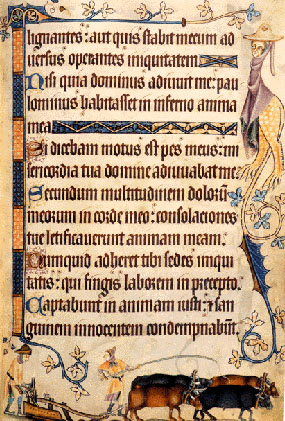 lignantes: aut quis stabit mecum ad
versus operantes iniquitatem
Nisi quia dominus adiuvit me: pau
lominus habitasset in inferno anima
mea
Si dicebam motus est pes meus: mi
sericordia tua domine adiuvabat me
Secundum multitudinem dolorū
meorum in corde meo: consolaciones
tue letificaverunt animam meam.
Numquid adheret tibi sedes iniqui
tatis: qui fingis laborem in precepto.
Captabunt in animam iusti: ⁊ san
guinem innocentem condempnabūt.